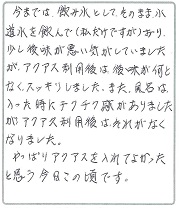 今までは、飲み水として、そのまま水
道水を飲んで(私だけですが)おり、
少し後味が悪い気がしていました
が、アクアス利用後は、後味が何と
なく、スッキリしました。また、風呂は
入った時にチクチク感がありました
が、アクアス利用後はそれがなく
なりました。
やっぱりアクアスを入れてよかった
と思う今日この頃です。